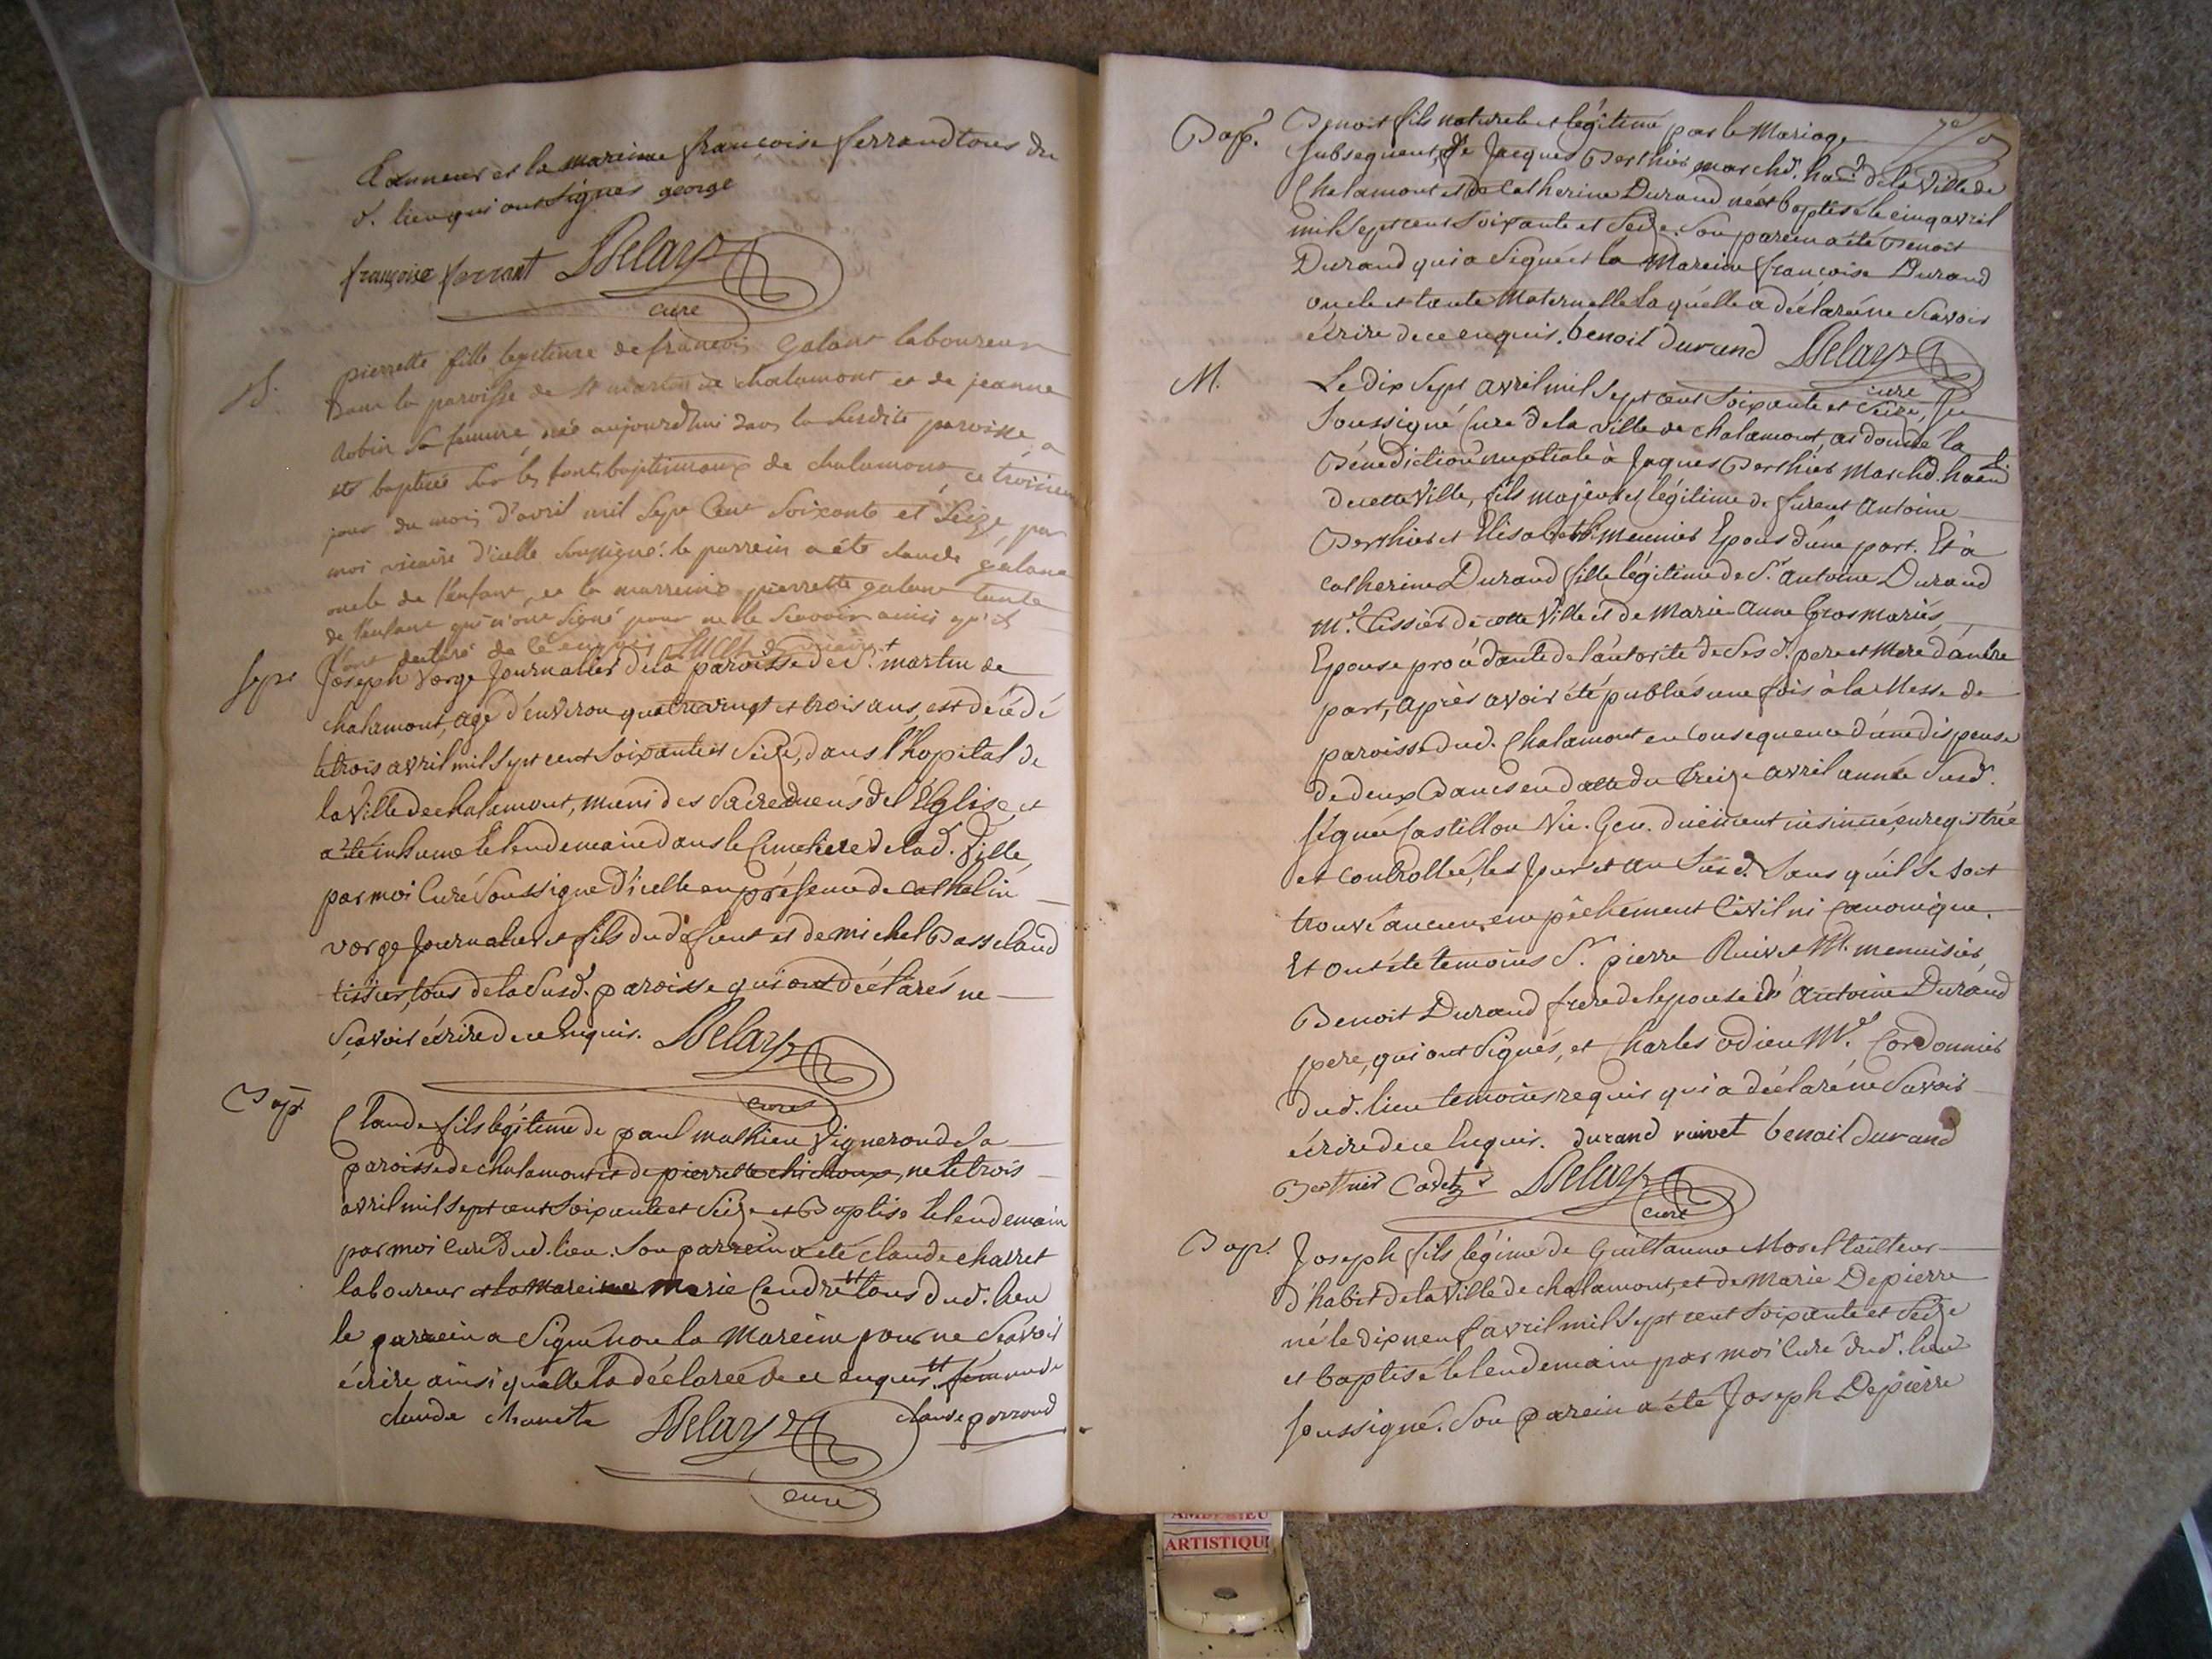 tanneur et la mareine françoise ferrand tous du
d. lieu qui ont signés george
françoise ferrant Delay
curé
B.
pierrette fille legitime de francois Galant laboureur
dans la paroisse de St martin de chalamont et de jeanne
Robin sa femme, née aujourdhui dans la susdite paroisse, a
été baptisée sur les fonts baptismaux de chalamont, ce troisieme
jour du mois d'avril mil sept cent soixante et seize, par
moi vicaire d'icelle soussigné. le parrein a été claude galant
oncle de l'enfant, et la marreine pierrette galant tante
de l'enfant qui n'ont signé pour ne le scavoir ainsi qu'il
l'ont declaré de ce enquis vicaire
Sepr
Joseph vorge Journalier de la paroisse de St. martin de
chalamont, agé d'environ quatrevingt et trois ans, est décédé
le trois avril mil sept cent soixante et seize, dans l'hopital de
la Ville de chalamont, muni des sacremens de l'Église, et
a été inhumé le lendemain dans le Cimetiere de lad. Ville,
par moi Curé soussigné d'icelle en présence de cathelin
vorge Journalier et fils du défunt et de michel Basseland
tissier, tous de la susd. paroisse qui ont déclarés ne
sçavoir écrire de ce enquis. Delay
curé
Bap.
Claude fils légitime de paul mathieu Vigneron de la
paroisse de chalamont et de pierrette chichoux, né le trois
avril mil sept cent soixante et seize et Baptisé le lendemain
par moi Curé dud. lieu. Son parrein a été claude charret
laboureur et la mareine marie Cendre tous dud. lieu
le parrein a signé non la mareine pour ne scavoir
écrire ainsi quelle la déclaréé de ce enquis. femme de
claude charrete Delay claude perroud
curé
Bap.
Benoit fils naturel et légitimé par le mariage
subsequent, de Jacques Berthier march. hant de la Ville de
Chalamont et de Catherine Durand né et baptisé le cinq avril
mil sept cent soixante et seize. Son parein a été Benoit
Durand qui a signé et la mareine françoise Durand
oncle et tante maternelle laquelle a déclaré ne scavoir
écrire de ce enquis. benoit durand Delay
curé
M.
Le dix sept avril mil sept cent soixante et seize, Je
soussigné Curé de la ville de chalamont, ai donné la
Bénédiction nuptiale à Jaques Berthier march.d. hant
de cette Ville, fils majeur et légitime de furent Antoine
Berthier et Elisabeth meunier Epous d'une part. Et à
catherine Durand fille légitime de Sr. antoine Durand
me. tissier de cette Ville et de marie anne Gros mariés,
Epouse procédante de l'autorité de ses d. pere et mere d'autre
part, après avoir été publiés une fois à la Messe de
paroisse dud. Chalamont en consequence d'une dispense
de deux Bancs en datte du treize avril année susd.
signée Castillon Vic. Gen. duëment insinuée, enregistrée
et controllée, les Jour et an sus d. sans qu'il se soit
trouvé aucun empêchement Civil ni canonique.
Et ont été temoins Sr. pierre Ruivet Me. menuisier
Benoit Durand frere de lepouse et antoine Durand
pere, qui ont signés, et Charles odieu Me. Cordonnier
dud. lieu temoins requis qui a déclaré ne savoir
écrire de ce enquis. durand ruivet benoit durand
Berthier Cadet Delay
curé
Bap.
Joseph fils légime de Guillaume Morel tailleur
d'habit de la Ville de chalamont, et de marie Depierre
né le dix neuf avril mil sept cent soixante et seize
et baptisé le lendemain par moi Curé dud. lieu
soussigné. Son parein a été Joseph Depierre
ARTISTIQU